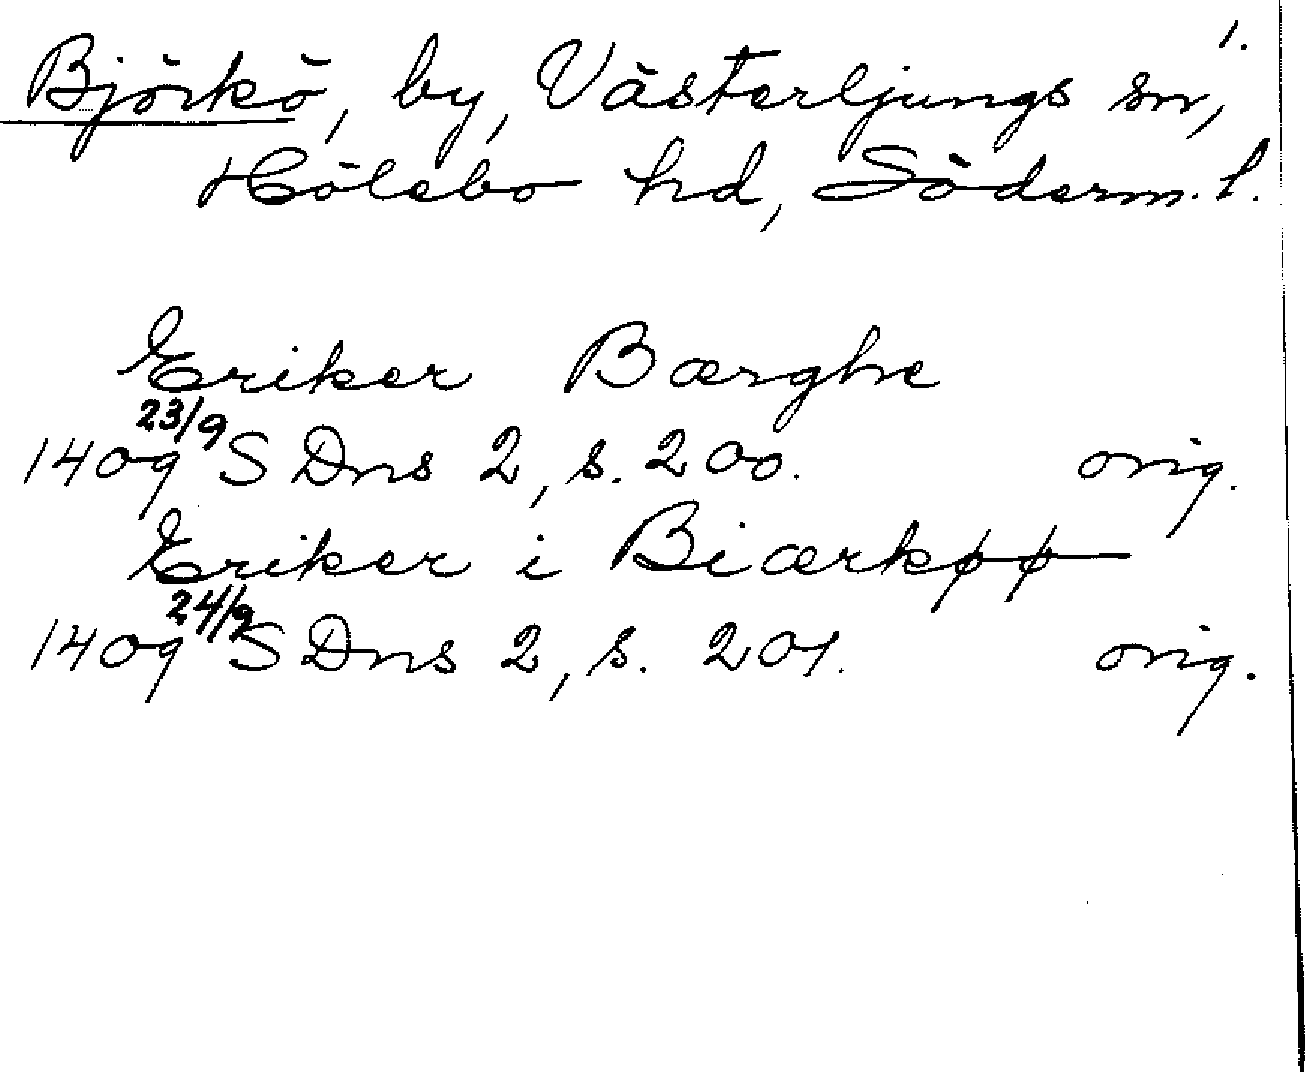 1.
Björkö, by, Västerljungs sn,
Hölebo hd, Söderm. l.
Eriker Bærghe
1409 23/9 SDns 2, s. 200. orig.
Eriker i Biærkøø
1409 24/9 SDns 2, s. 201. orig.